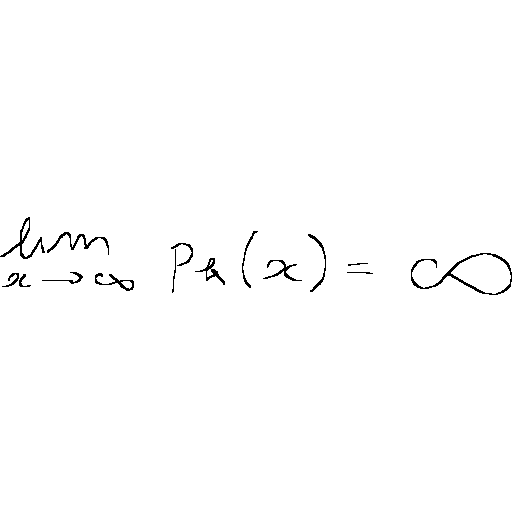 \lim_{x \to \infty} P_k(x) = \infty